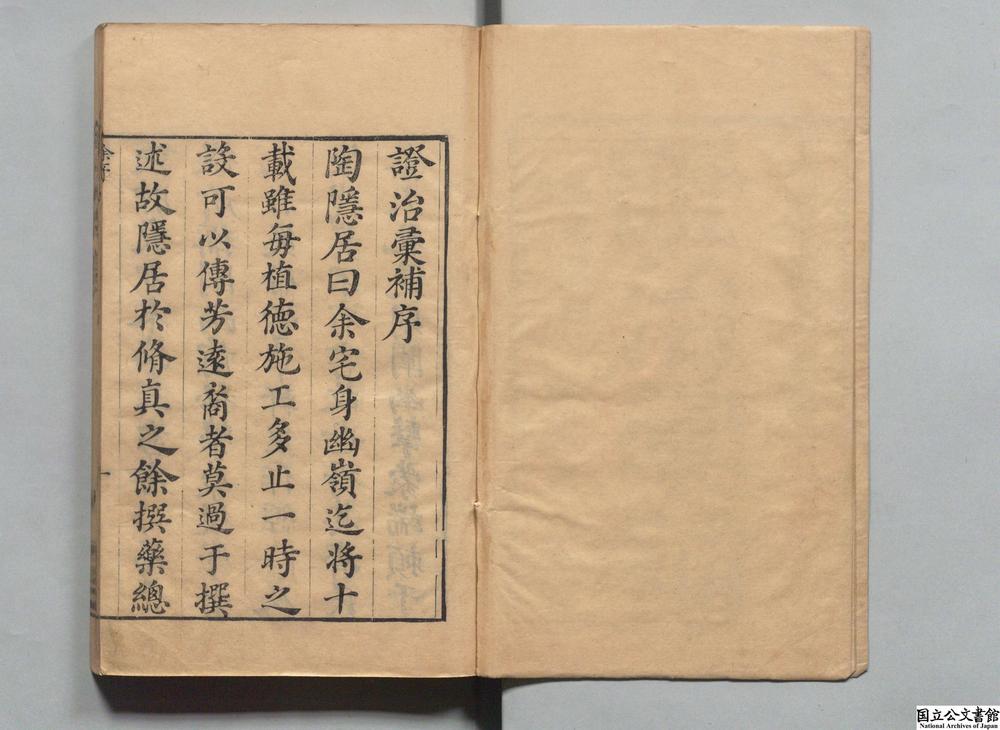 證治彙補序
陶隱居曰余宅身幽嶺迄將十
載雖每植德施工多止一時之
設可以傳芳遠裔者莫過于撰
述故隱居於脩真之餘撰藥總
国立公文書館
National Archives of Japan